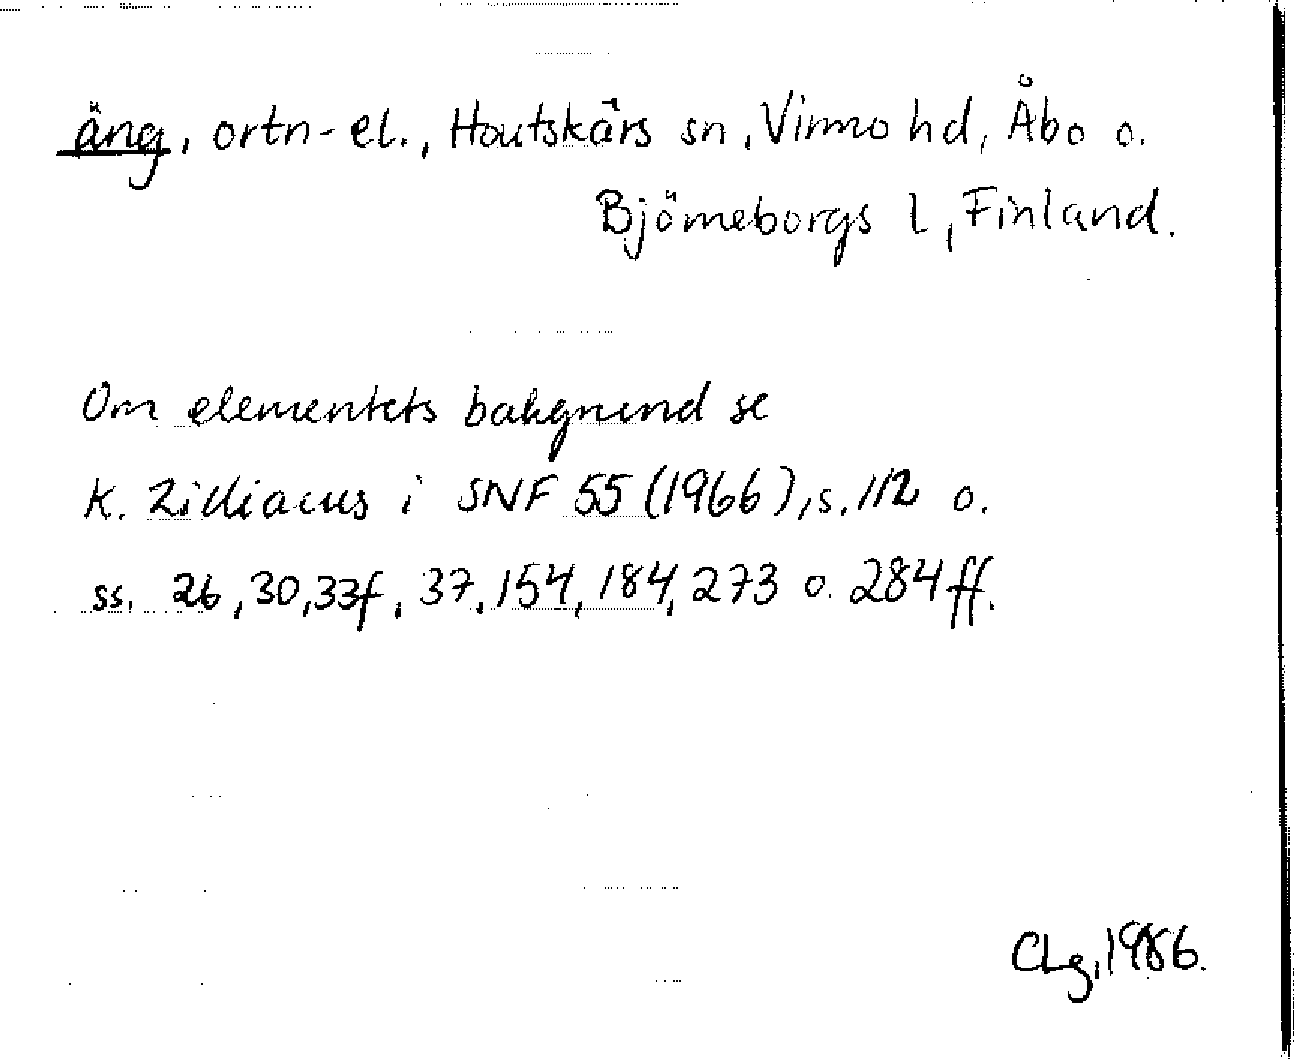 äng, ortn-el., Houtskärs sn, Virmo hd, Åbo o.
Björneborgs l, Finland.
Om elementets bakgrund se
K. Zilliacus i SNF 55 (1966), s. 112 o.
ss. 26, 30, 33f, 37, 154, 184, 273 o. 284 ff.
CLg, 1986.